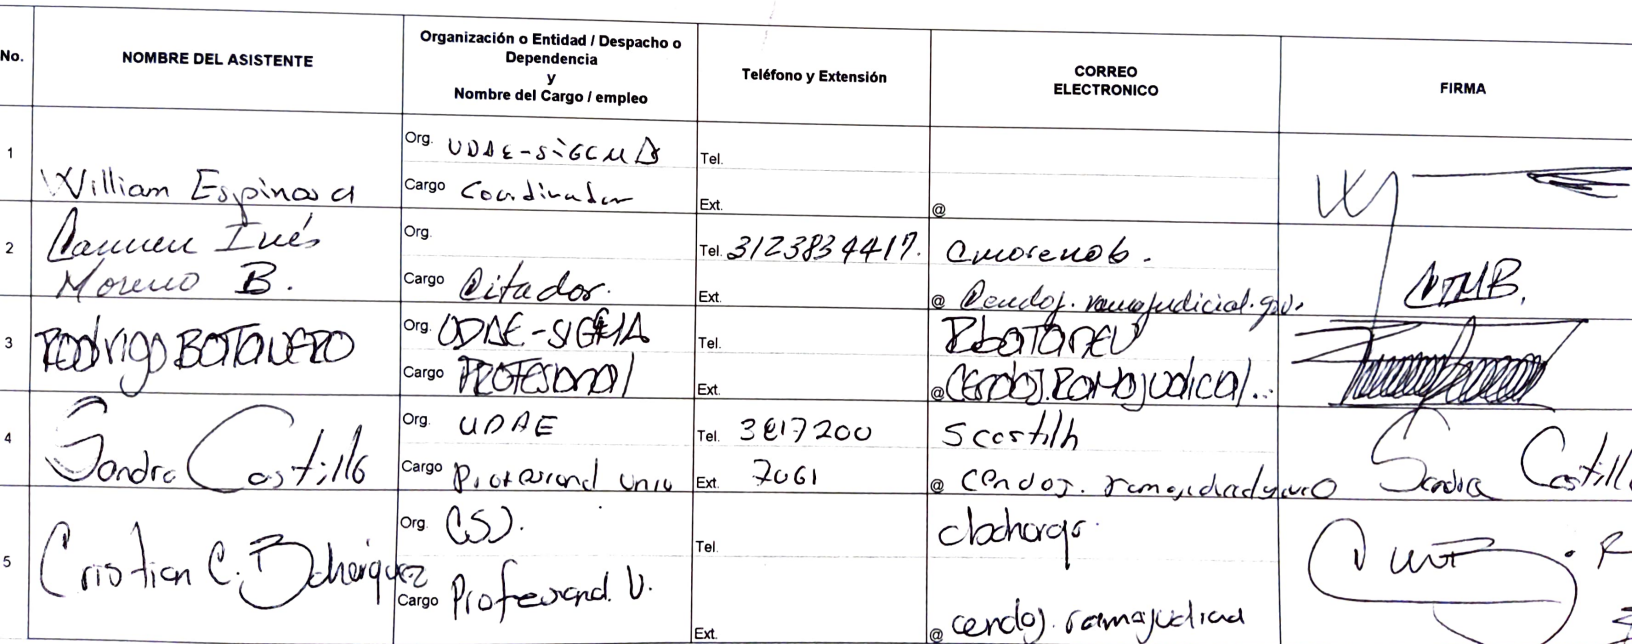 No.
NOMBRE DEL ASISTENTE
Organización o Entidad / Despacho o
Dependencia
y
Nombre del Cargo / empleo
Teléfono y Extensión
CORREO
ELECTRONICO
FIRMA
1
William Espinosa
Org. UDAE-SIGCMA
Cargo Coordinador
Tel.
Ext.
@
2
Carmen Inés
Moreno B.
Org.
Cargo Citador.
Tel. 3123834417.
Ext.
cmorenob.
@ Cendoj.ramajudicial.gov.
CIMB.
3
Rodrigo BOTAVERO
Org. UDAE-SIGCMA
Cargo PROFESIONAL
Tel.
Ext.
@ CENDOJ.RAMAJUDICIAL..
4
Sandra Castillo
Org. UDAE
Cargo Profesional Univ
Tel. 3817200
Ext. 7061
scastilh
@ cendoj.
Sandra Castillo
5
Cristian C. Bohórquez
Org. CSJ.
Cargo Profesional U.
Tel.
Ext.
@ cendoj.ramajudicial